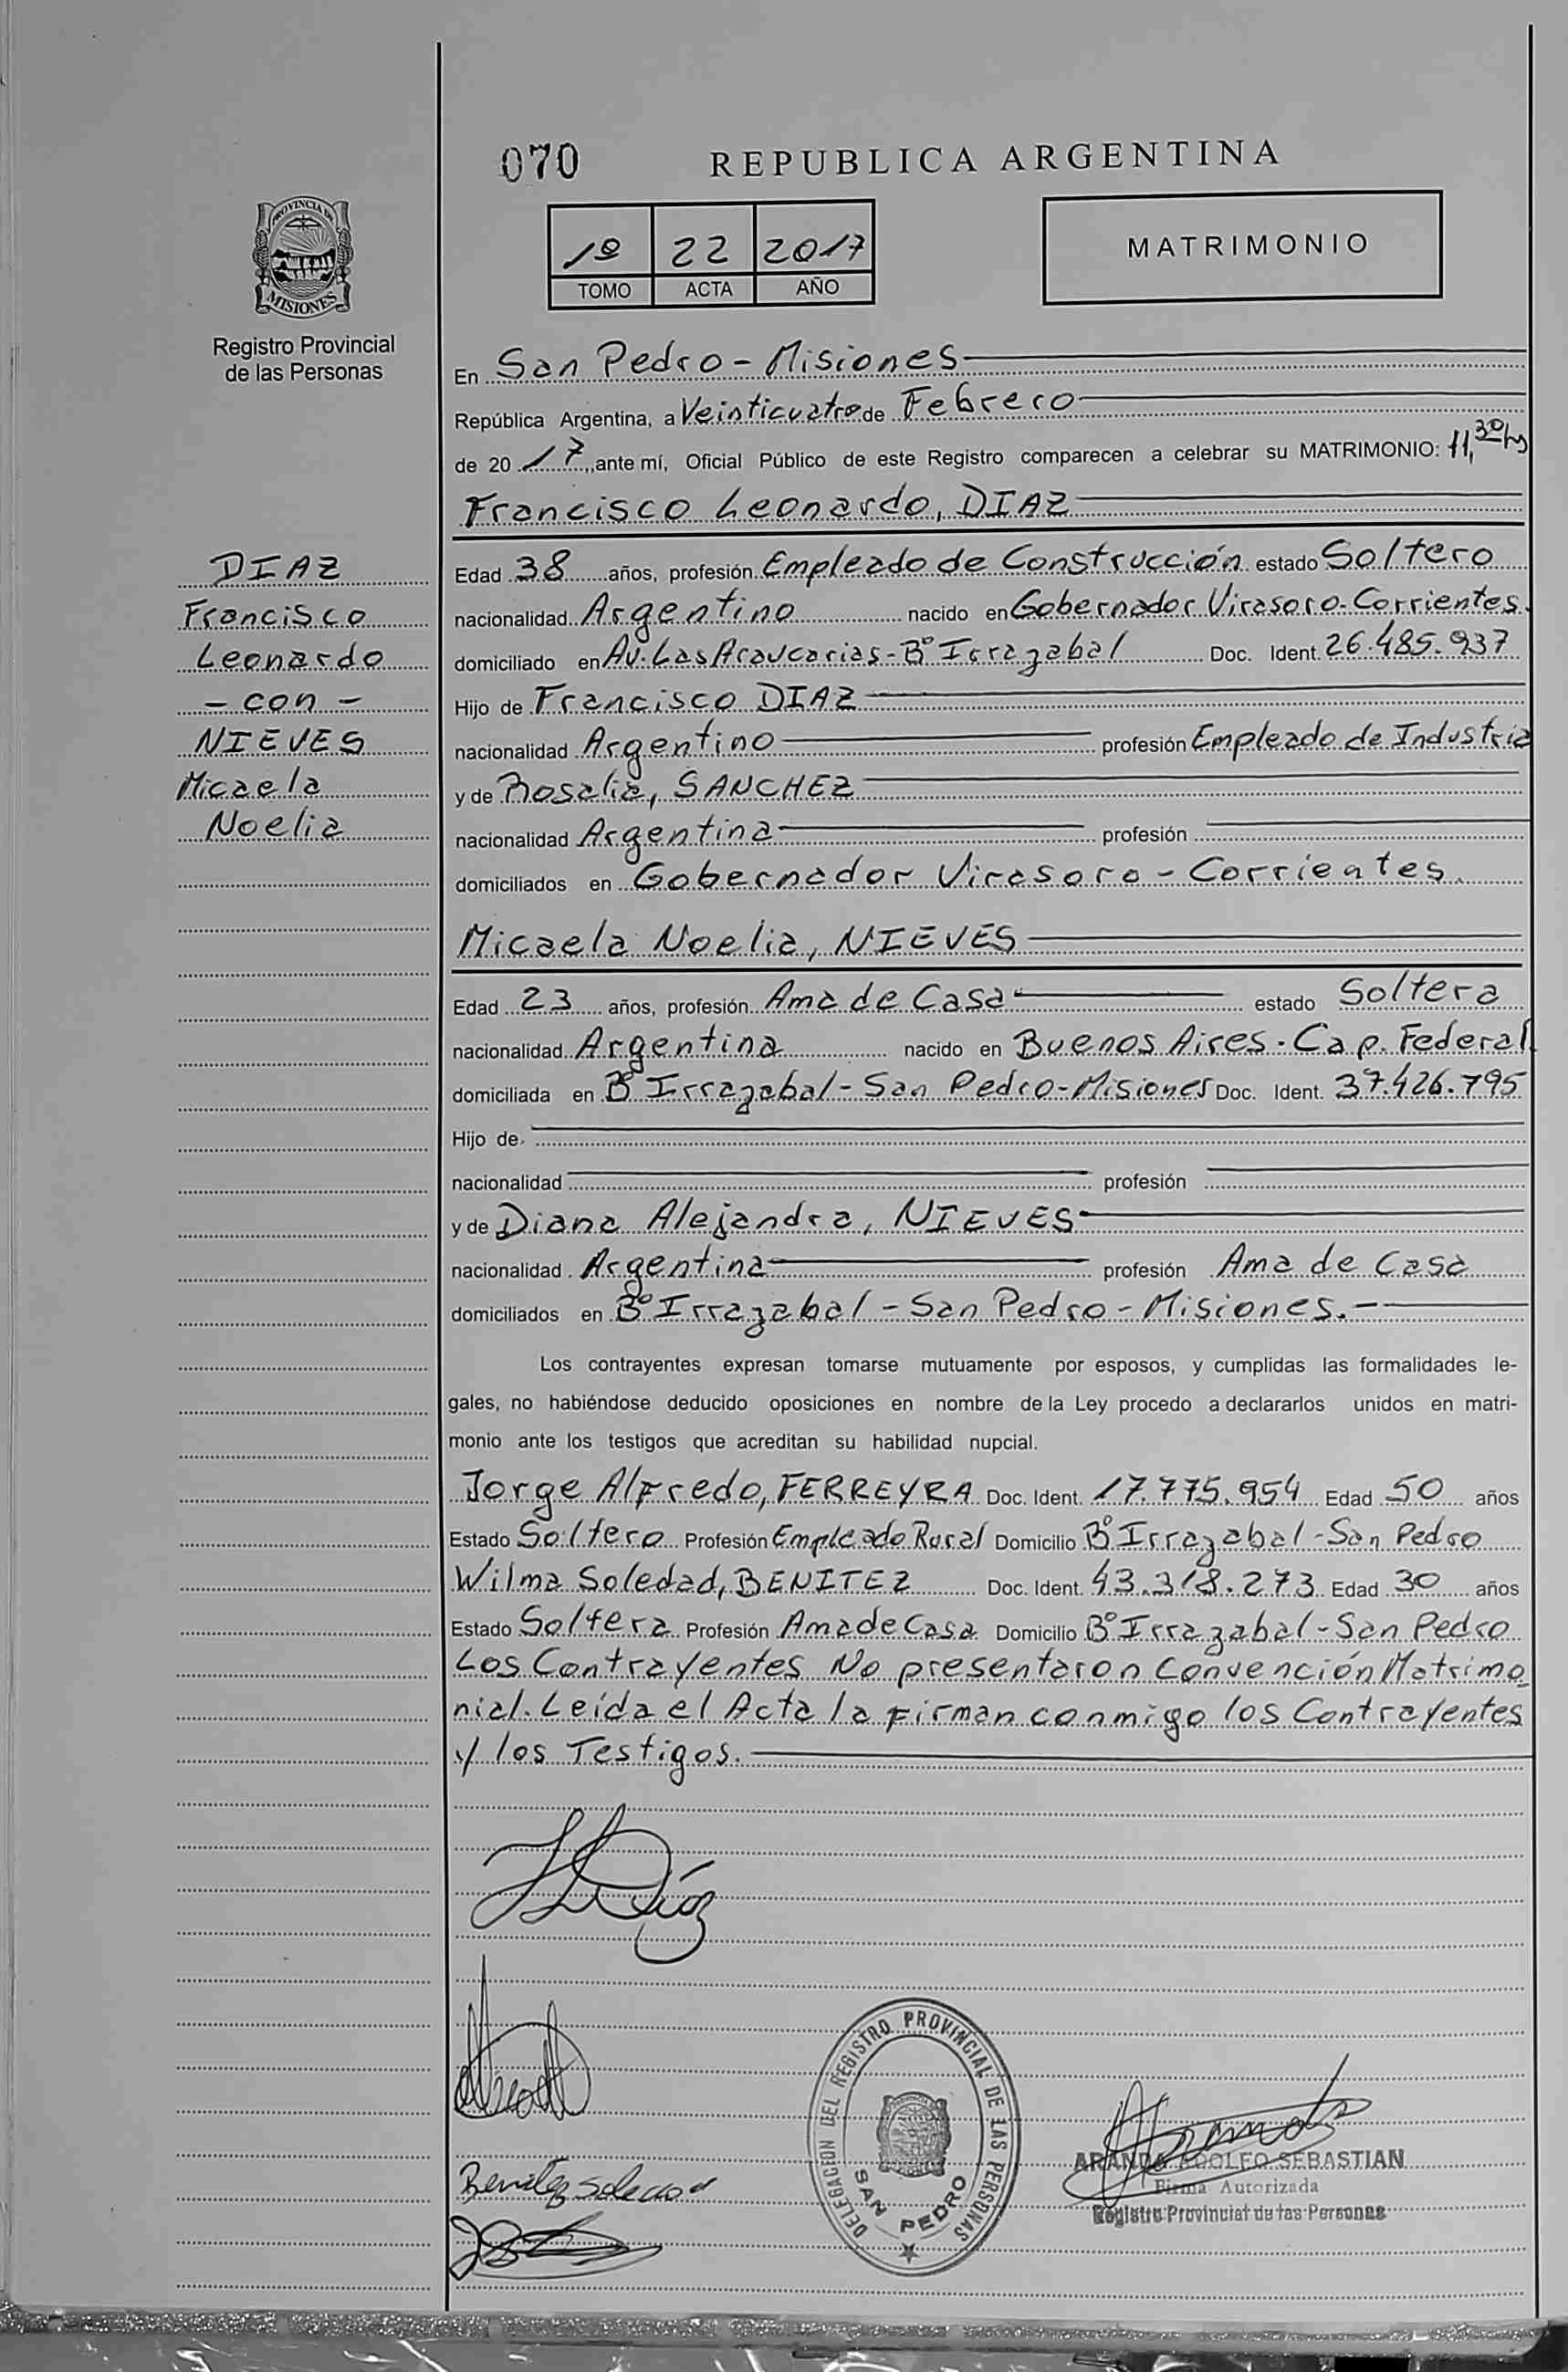 070 REPUBLICA ARGENTINA
PROVINCIA DE
MISIONES
Registro Provincial
de las Personas
1º 22 2017
TOMO ACTA AÑO
MATRIMONIO
En San Pedro - Misiones
República Argentina, a Veinticuatro de Febrero
de 2017, ante mí, Oficial Público de este Registro comparecen a celebrar su MATRIMONIO: 11,30 hs
Francisco Leonardo, DIAZ
DIAZ
Francisco
Leonardo
- con -
NIEVES
Micaela
Noelia
Edad 38 años, profesión Empleado de Construcción estado Soltero
nacionalidad Argentino nacido en Gobernador Virasoro - Corrientes.
domiciliado en Av. Las Araucarias - Bº Irrazabal Doc. Ident. 26.485.937
Hijo de Francisco DIAZ
nacionalidad Argentino profesión Empleado de Industria
y de Rosalia, SANCHEZ
nacionalidad Argentina profesión
domiciliados en Gobernador Virasoro - Corrientes.
Micaela Noelia, NIEVES
Edad 23 años, profesión Ama de Casa estado Soltera
nacionalidad Argentina nacido en Buenos Aires - Cap. Federal
domiciliada en Bº Irrazabal - San Pedro - Misiones Doc. Ident. 37.426.795
Hijo de
nacionalidad profesión
y de Diana Alejandra, NIEVES
nacionalidad Argentina profesión Ama de Casa
domiciliados en Bº Irrazabal - San Pedro - Misiones. -
Los contrayentes expresan tomarse mutuamente por esposos, y cumplidas las formalidades le-
gales, no habiéndose deducido oposiciones en nombre de la Ley procedo a declararlos unidos en matri-
monio ante los testigos que acreditan su habilidad nupcial.
Jorge Alfredo, FERREYRA Doc. Ident. 17.775.954 Edad 50 años
Estado Soltero Profesión Empleado Rural Domicilio Bº Irrazabal - San Pedro
Wilma Soledad, BENITEZ Doc. Ident. 43.318.273 Edad 30 años
Estado Soltera Profesión Ama de Casa Domicilio Bº Irrazabal - San Pedro
Los Contrayentes No presentaron Convención Matrimo
nial. Leída el Acta la firman conmigo los Contrayentes
y los Testigos.
Díaz
DELEGACION DEL REGISTRO PROVINCIAL DE LAS PERSONAS
SAN PEDRO
Benitez Soledad
ARANDA ADOLFO SEBASTIAN
Firma Autorizada
Registro Provincial de las Personas